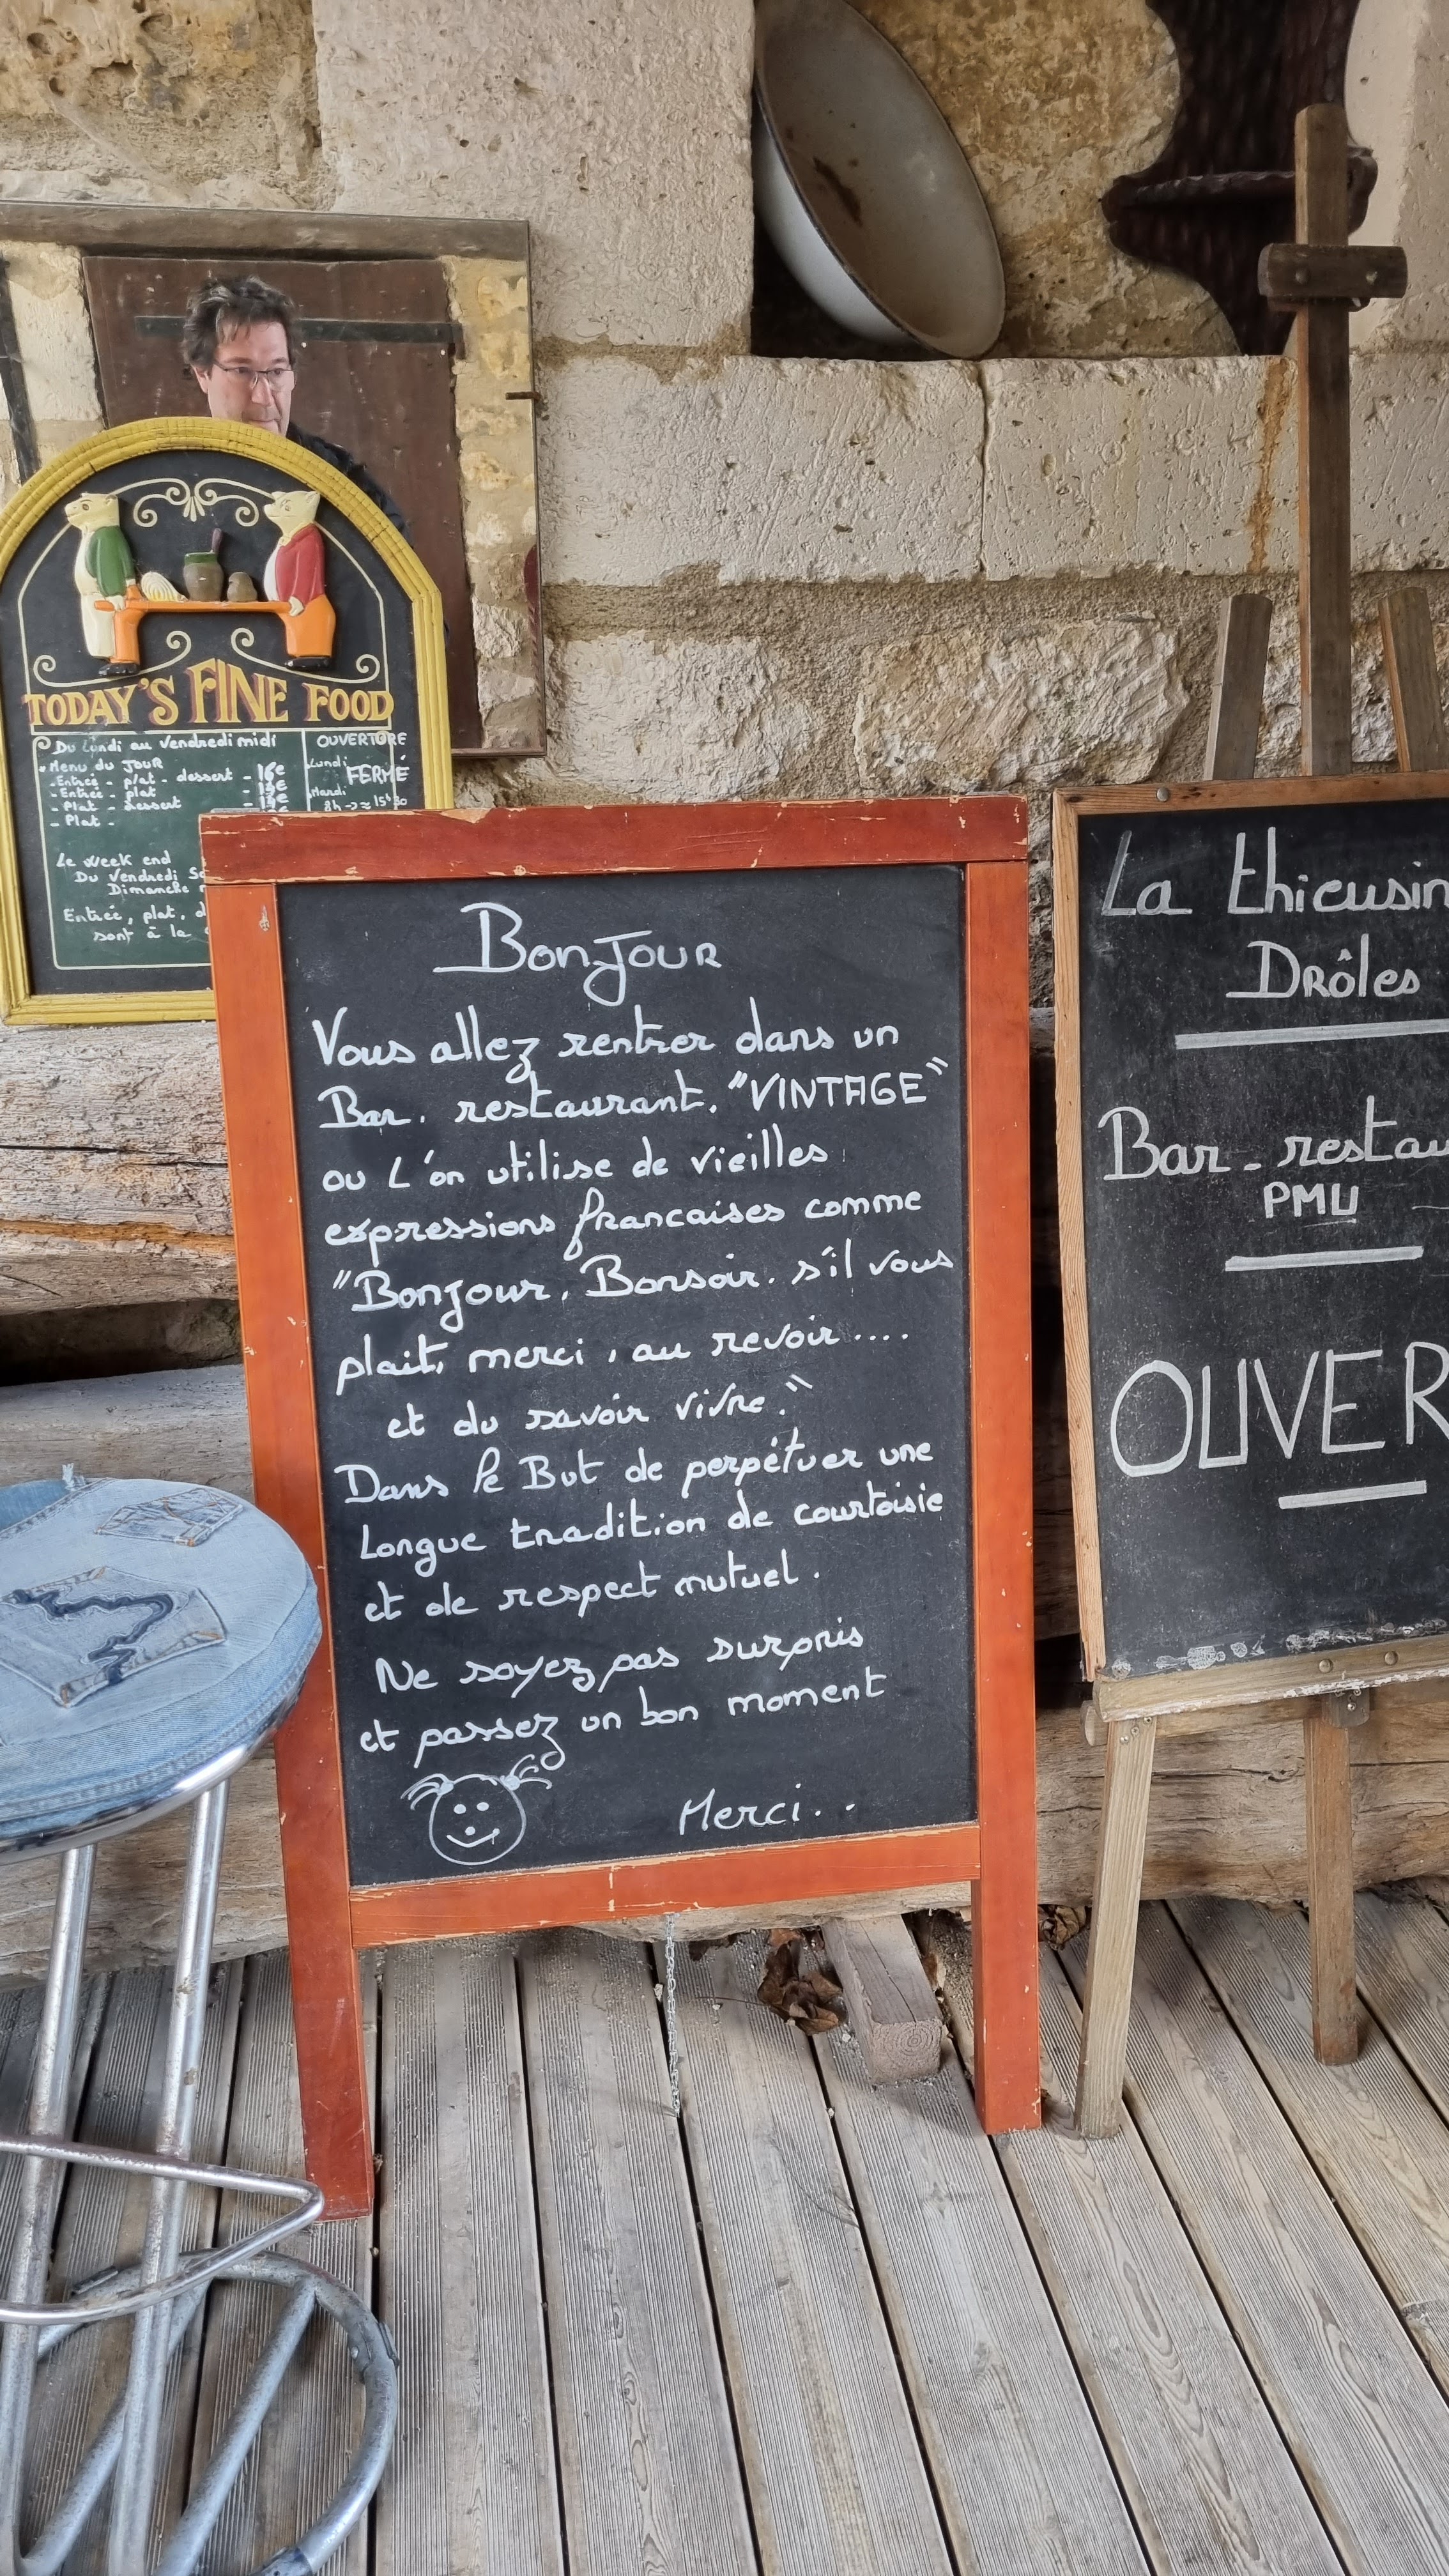 TODAY'S FINE FOOD
Du Lundi au Vendredi midi
Menu du JOUR
- Entrée - plat - dessert - 16€
- Entrée - plat
- Plat - dessert
- Plat -
Le week end
Du Vendredi
Dimanche
Entrée, plat,
sont à la
OUVERTURE
Lundi
FERMÉ
Mardi
Bonjour
Vous allez rentrer dans un
Bar. restaurant. "VINTAGE"
ou L'on utilise de vieilles
expressions francaises comme
"Bonjour, Bonsoir. s'il vous
plait, merci, au revoir ....
et du savoir vivre."
Dans le But de perpétuer une
Longue tradition de courtoisie
et de respect mutuel.
Ne soyez pas surpris
et passez un bon moment
Merci..
La thieusin
Drôles
Bar - restau
PMU
OUVER